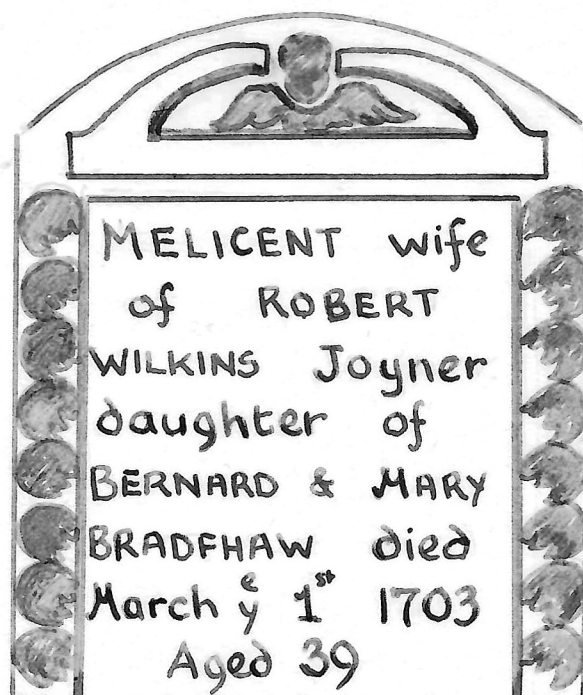 MELICENT wife
of ROBERT
WILKINS Joyner
daughter of
BERNARD & MARY
BRADFHAW died
March yᵉ 1ˢᵗ 1703
Aged 39